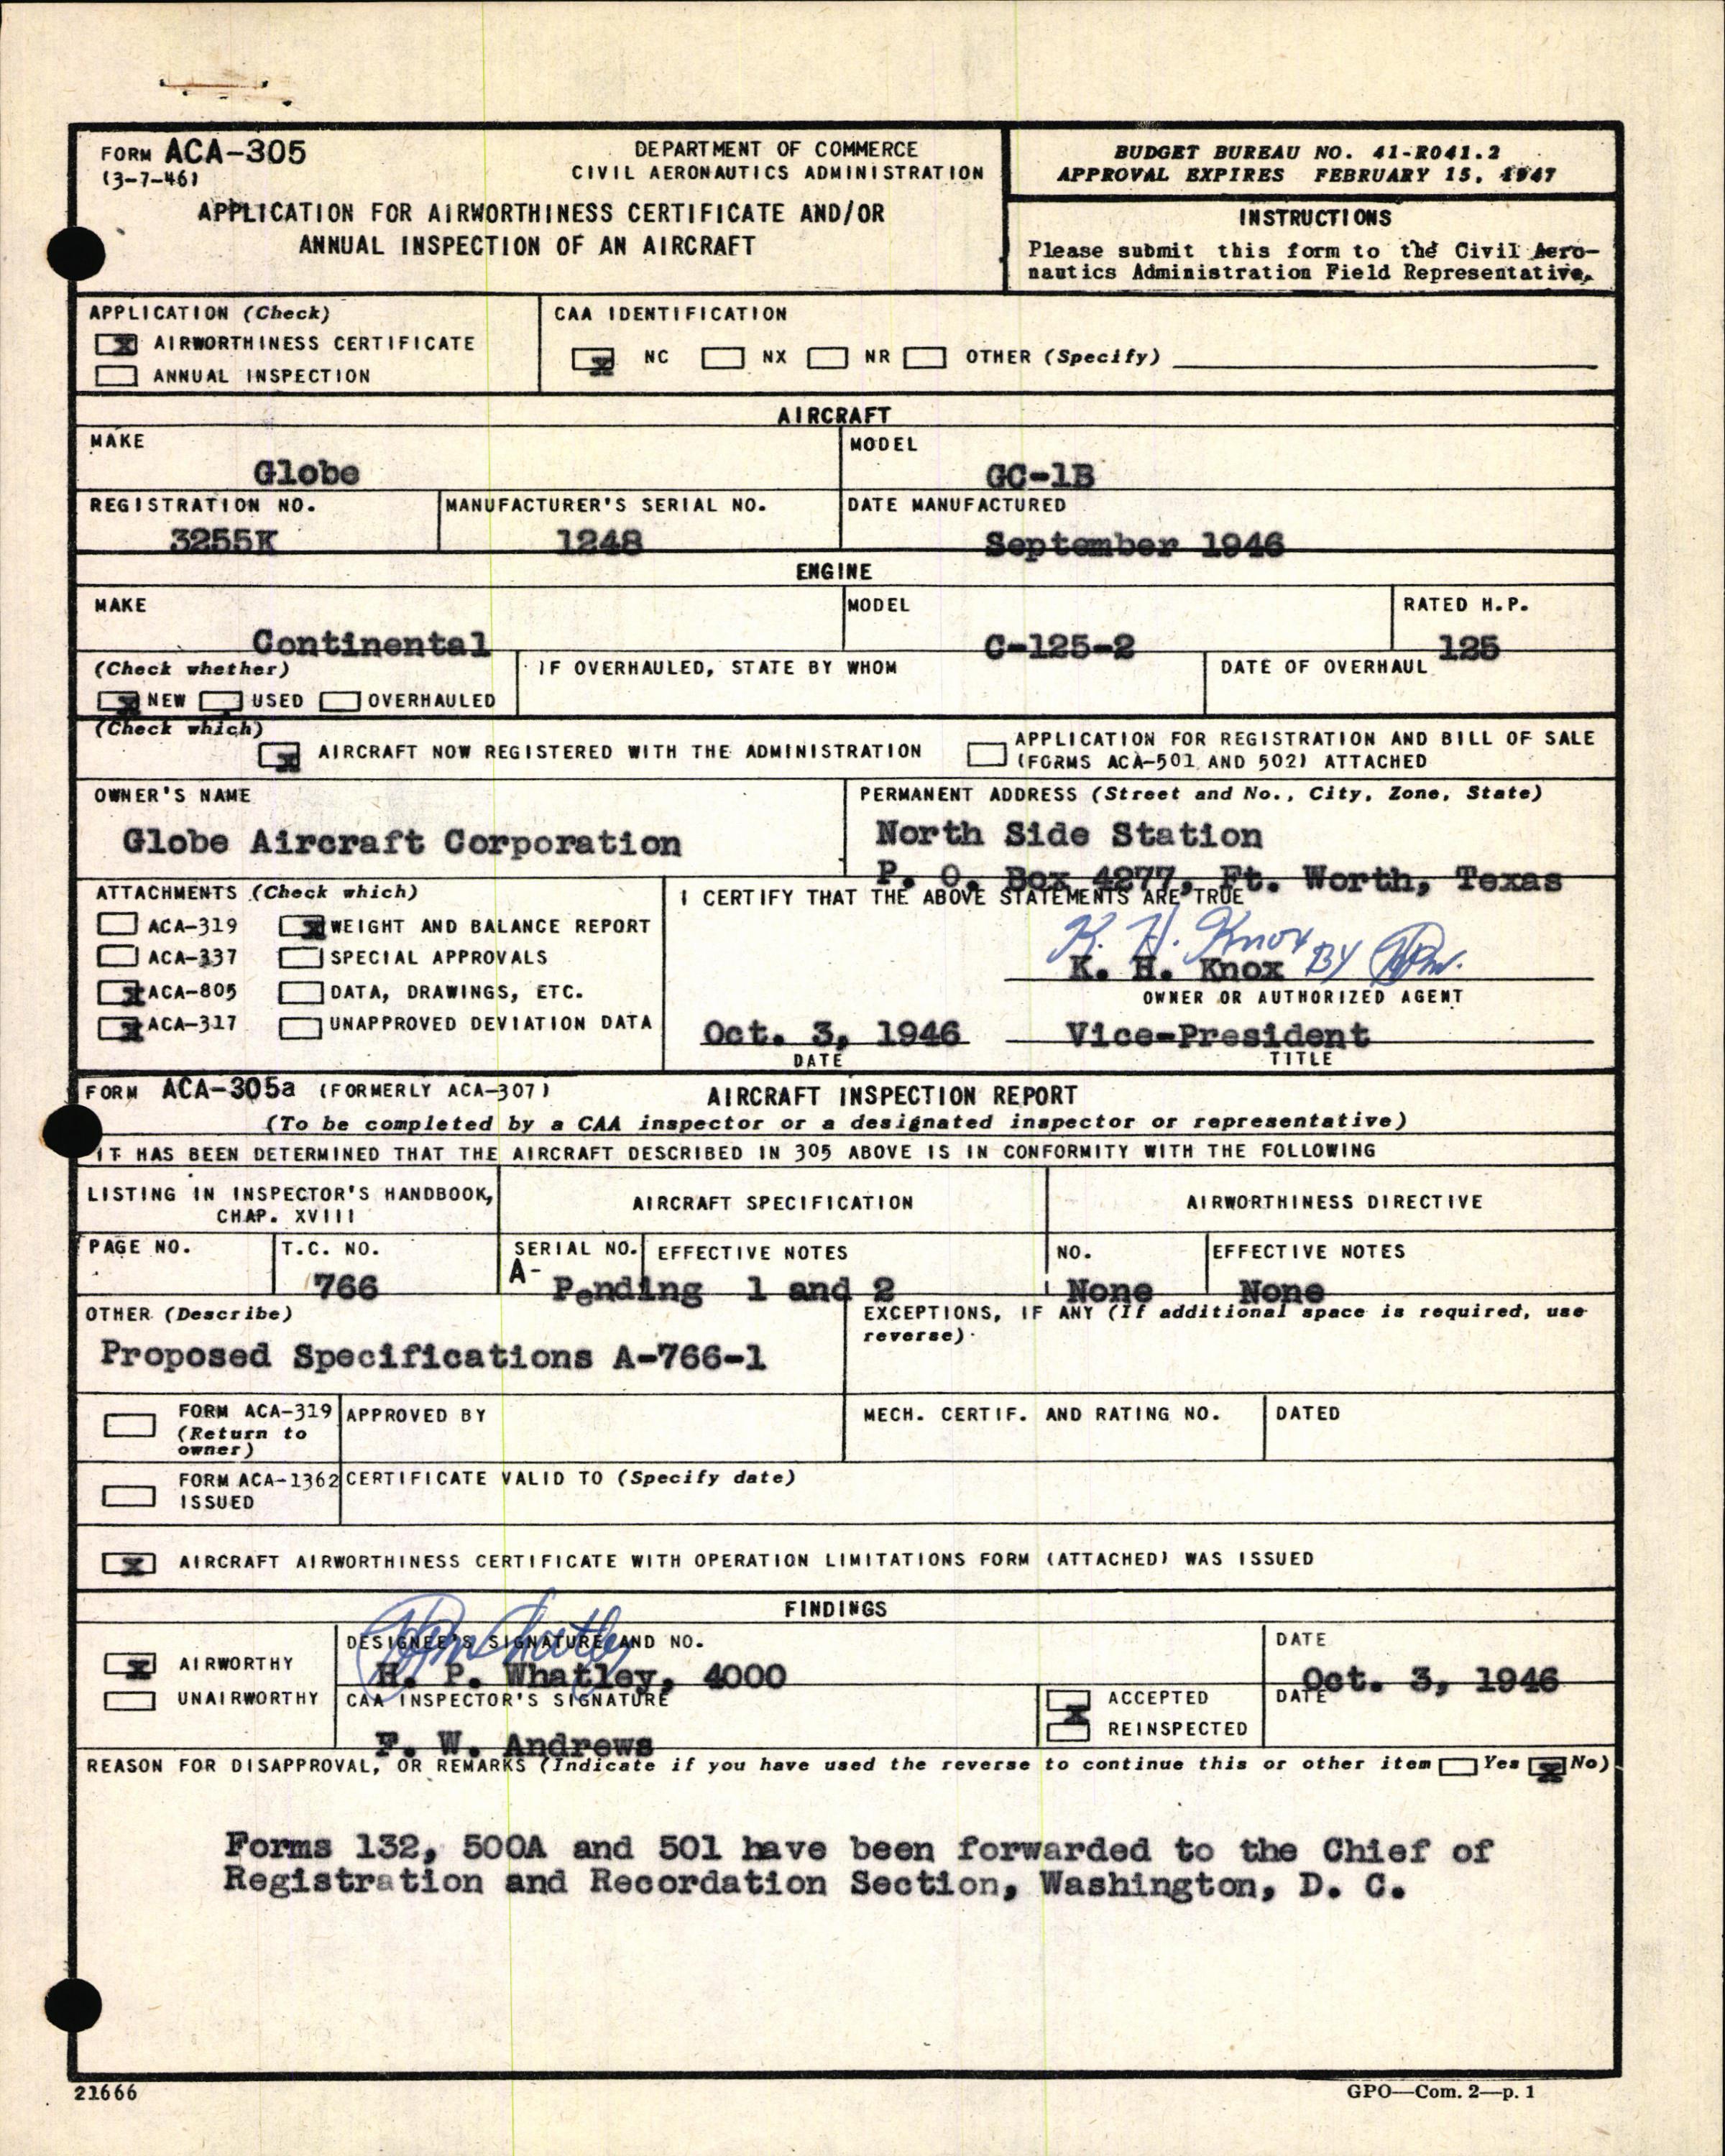 FORM ACA-305
(3-7-46)
DEPARTMENT OF COMMERCE
CIVIL AERONAUTICS ADMINISTRATION
APPLICATION FOR AIRWORTHINESS CERTIFICATE AND/OR
ANNUAL INSPECTION OF AN AIRCRAFT
BUDGET BUREAU NO. 41-R041.2
APPROVAL EXPIRES FEBRUARY 15, 1947
INSTRUCTIONS
Please submit this form to the Civil Aero-
nautics Administration Field Representative.
APPLICATION (Check)
X AIRWORTHINESS CERTIFICATE
ANNUAL INSPECTION
CAA IDENTIFICATION
X NC NX NR OTHER (Specify)
AIRCRAFT
MAKE
Globe
MODEL
GC-1B
REGISTRATION NO.
3255K
MANUFACTURER'S SERIAL NO.
1248
DATE MANUFACTURED
September 1946
ENGINE
MAKE
Continental
MODEL
C-125-2
RATED H.P.
125
(Check whether)
X NEW USED OVERHAULED
IF OVERHAULED, STATE BY WHOM
DATE OF OVERHAUL
(Check which)
X AIRCRAFT NOW REGISTERED WITH THE ADMINISTRATION
APPLICATION FOR REGISTRATION AND BILL OF SALE
(FORMS ACA-501 AND 502) ATTACHED
OWNER'S NAME
Globe Aircraft Corporation
PERMANENT ADDRESS (Street and No., City, Zone, State)
North Side Station
P. O. Box 4277, Ft. Worth, Texas
ATTACHMENTS (Check which)
ACA-319 X WEIGHT AND BALANCE REPORT
ACA-337 SPECIAL APPROVALS
X ACA-805 DATA, DRAWINGS, ETC.
X ACA-317 UNAPPROVED DEVIATION DATA
I CERTIFY THAT THE ABOVE STATEMENTS ARE TRUE
K. H. Knox BY
K. H. Knox
OWNER OR AUTHORIZED AGENT
Oct. 3, 1946
DATE
Vice-President
TITLE
FORM ACA-305a (FORMERLY ACA-307)
AIRCRAFT INSPECTION REPORT
(To be completed by a CAA inspector or a designated inspector or representative)
IT HAS BEEN DETERMINED THAT THE AIRCRAFT DESCRIBED IN 305 ABOVE IS IN CONFORMITY WITH THE FOLLOWING
LISTING IN INSPECTOR'S HANDBOOK,
CHAP. XVIII
AIRCRAFT SPECIFICATION
AIRWORTHINESS DIRECTIVE
PAGE NO.
T.C. NO.
766
SERIAL NO.
A- Pending
EFFECTIVE NOTES
1 and 2
NO.
None
EFFECTIVE NOTES
None
OTHER (Describe)
Proposed Specifications A-766-1
EXCEPTIONS, IF ANY (If additional space is required, use
reverse)
FORM ACA-319
(Return to
owner)
APPROVED BY
MECH. CERTIF. AND RATING NO.
DATED
FORM ACA-1362
ISSUED
CERTIFICATE VALID TO (Specify date)
X AIRCRAFT AIRWORTHINESS CERTIFICATE WITH OPERATION LIMITATIONS FORM (ATTACHED) WAS ISSUED
FINDINGS
X AIRWORTHY
UNAIRWORTHY
DESIGNEE'S SIGNATURE AND NO.
H. P. Whatley, 4000
DATE
Oct. 3, 1946
CAA INSPECTOR'S SIGNATURE
F. W. Andrews
ACCEPTED
X
REINSPECTED
DATE
REASON FOR DISAPPROVAL, OR REMARKS (Indicate if you have used the reverse to continue this or other item Yes X No)
Forms 132, 500A and 501 have been forwarded to the Chief of
Registration and Recordation Section, Washington, D. C.
21666
GPO—Com. 2—p. 1